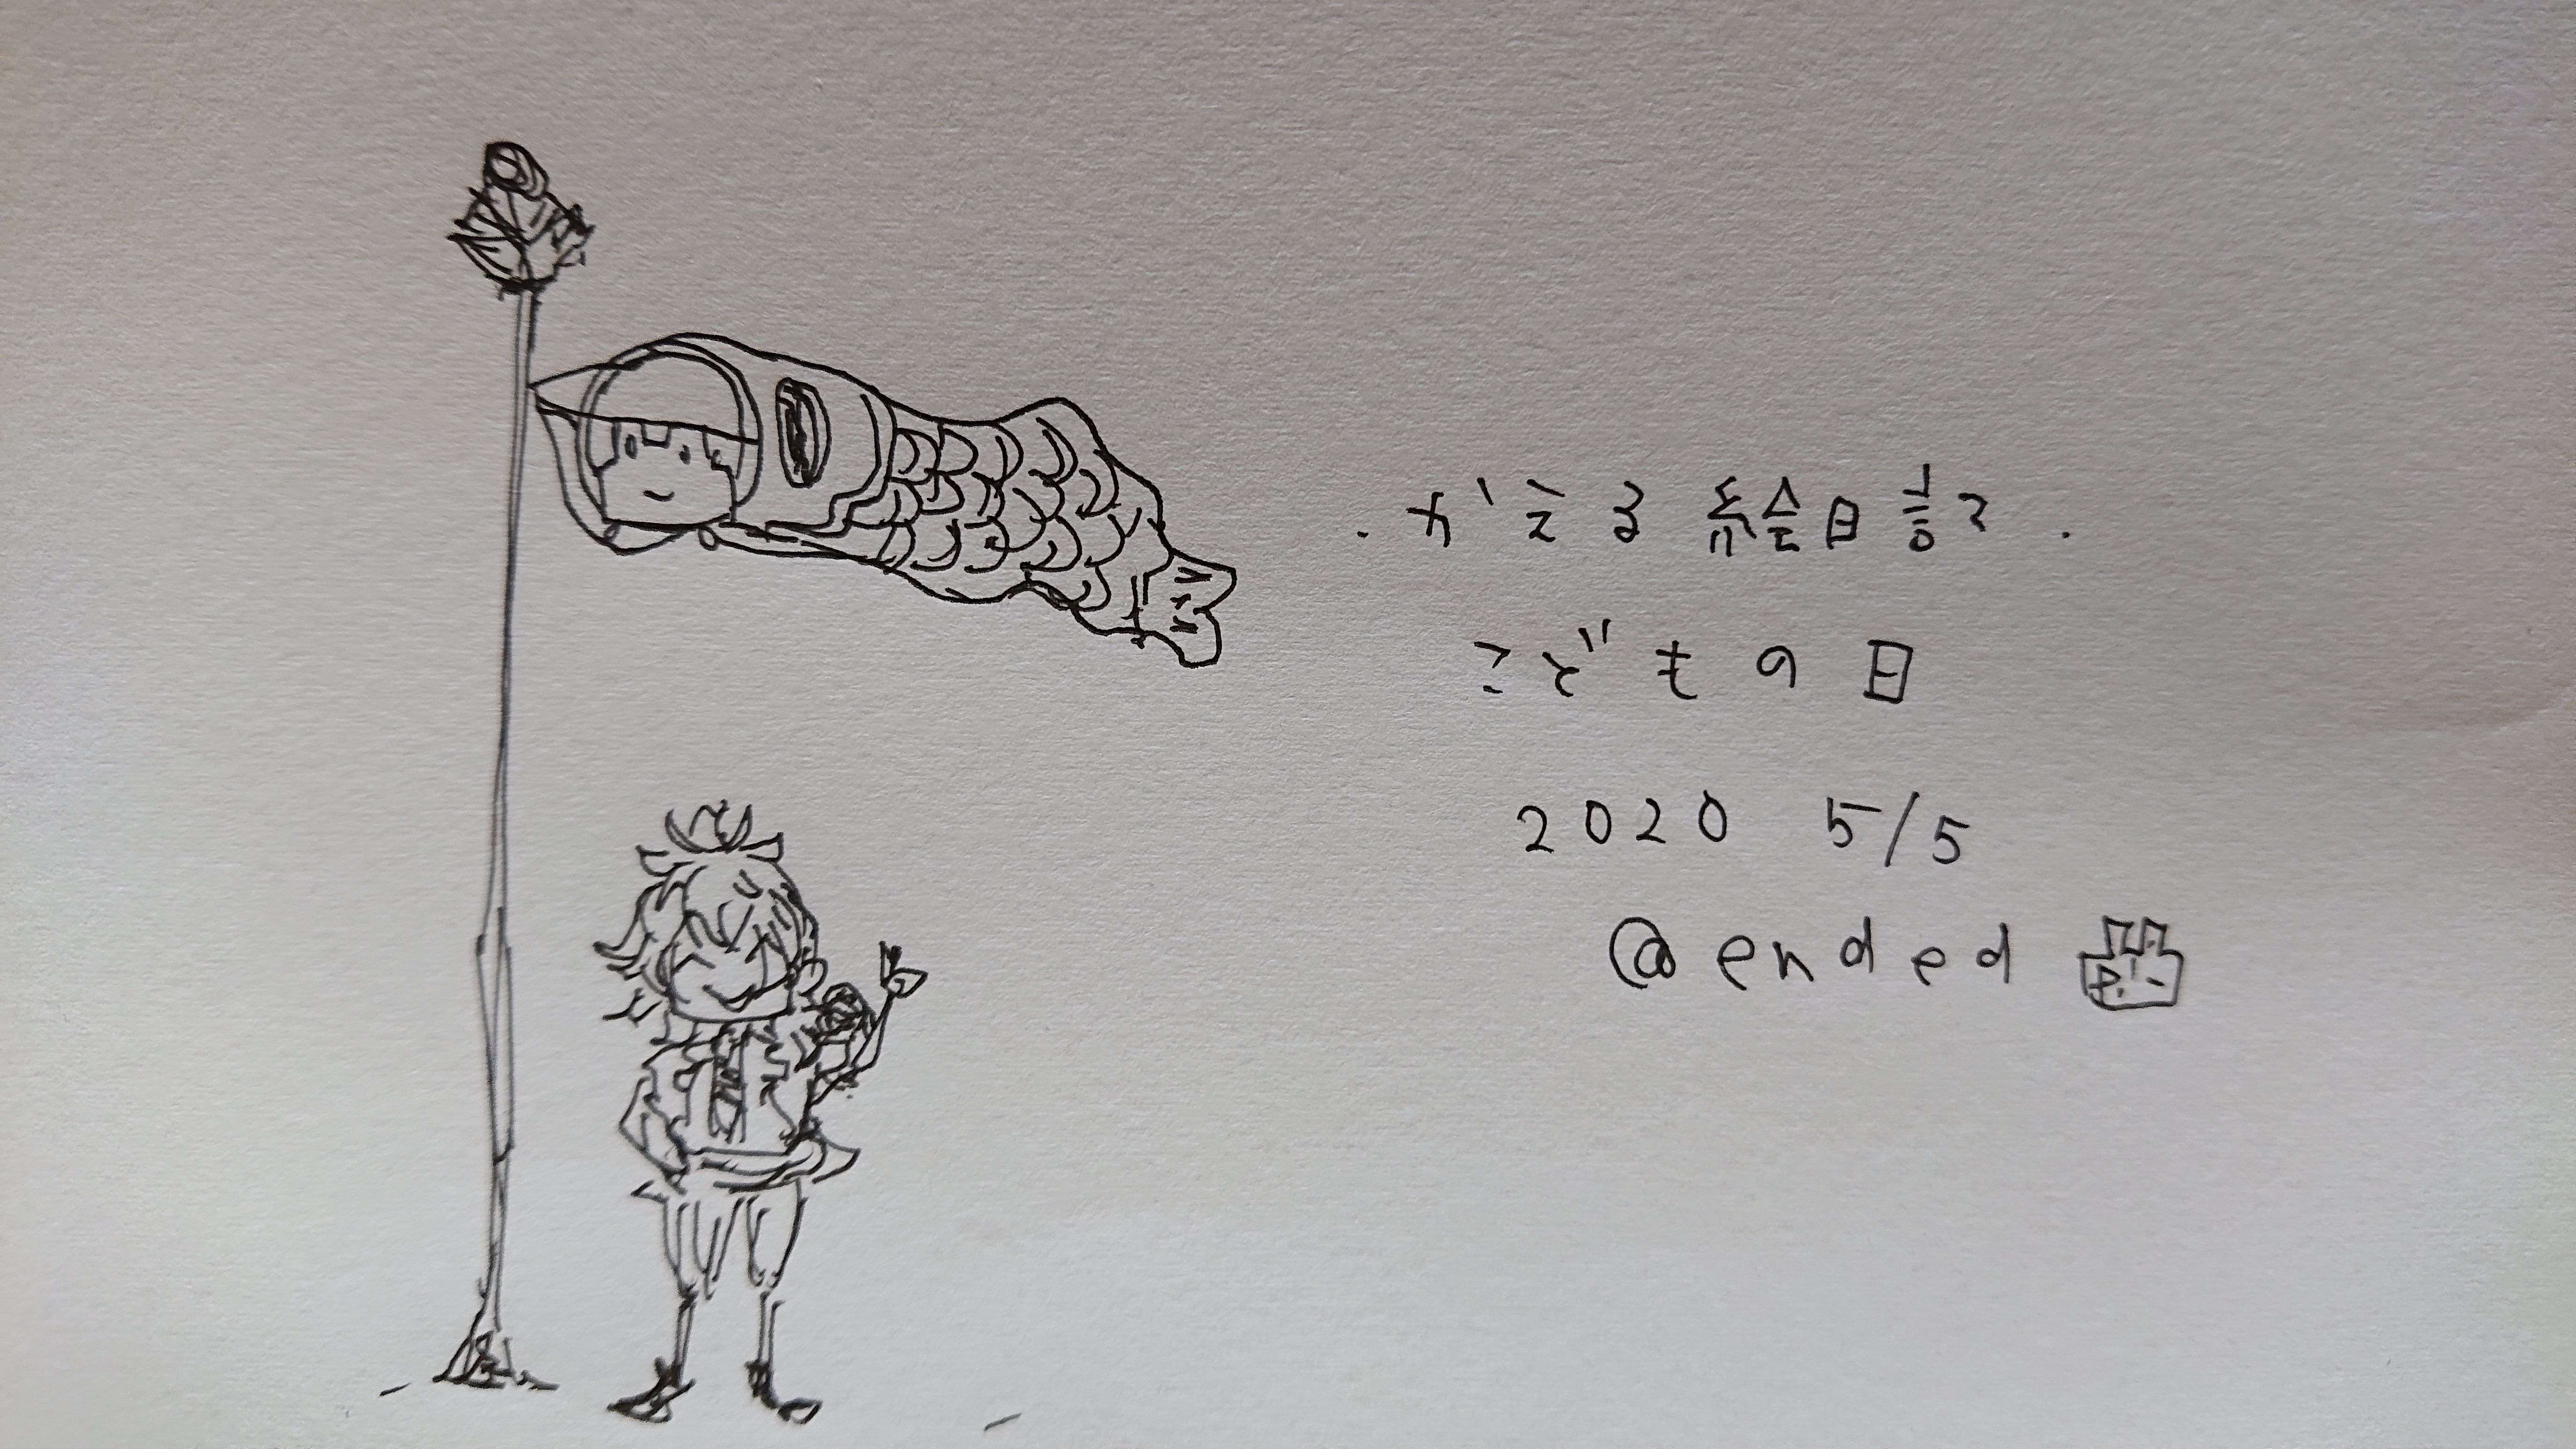 かえる絵日記
こどもの日
2020 5/5
@ended